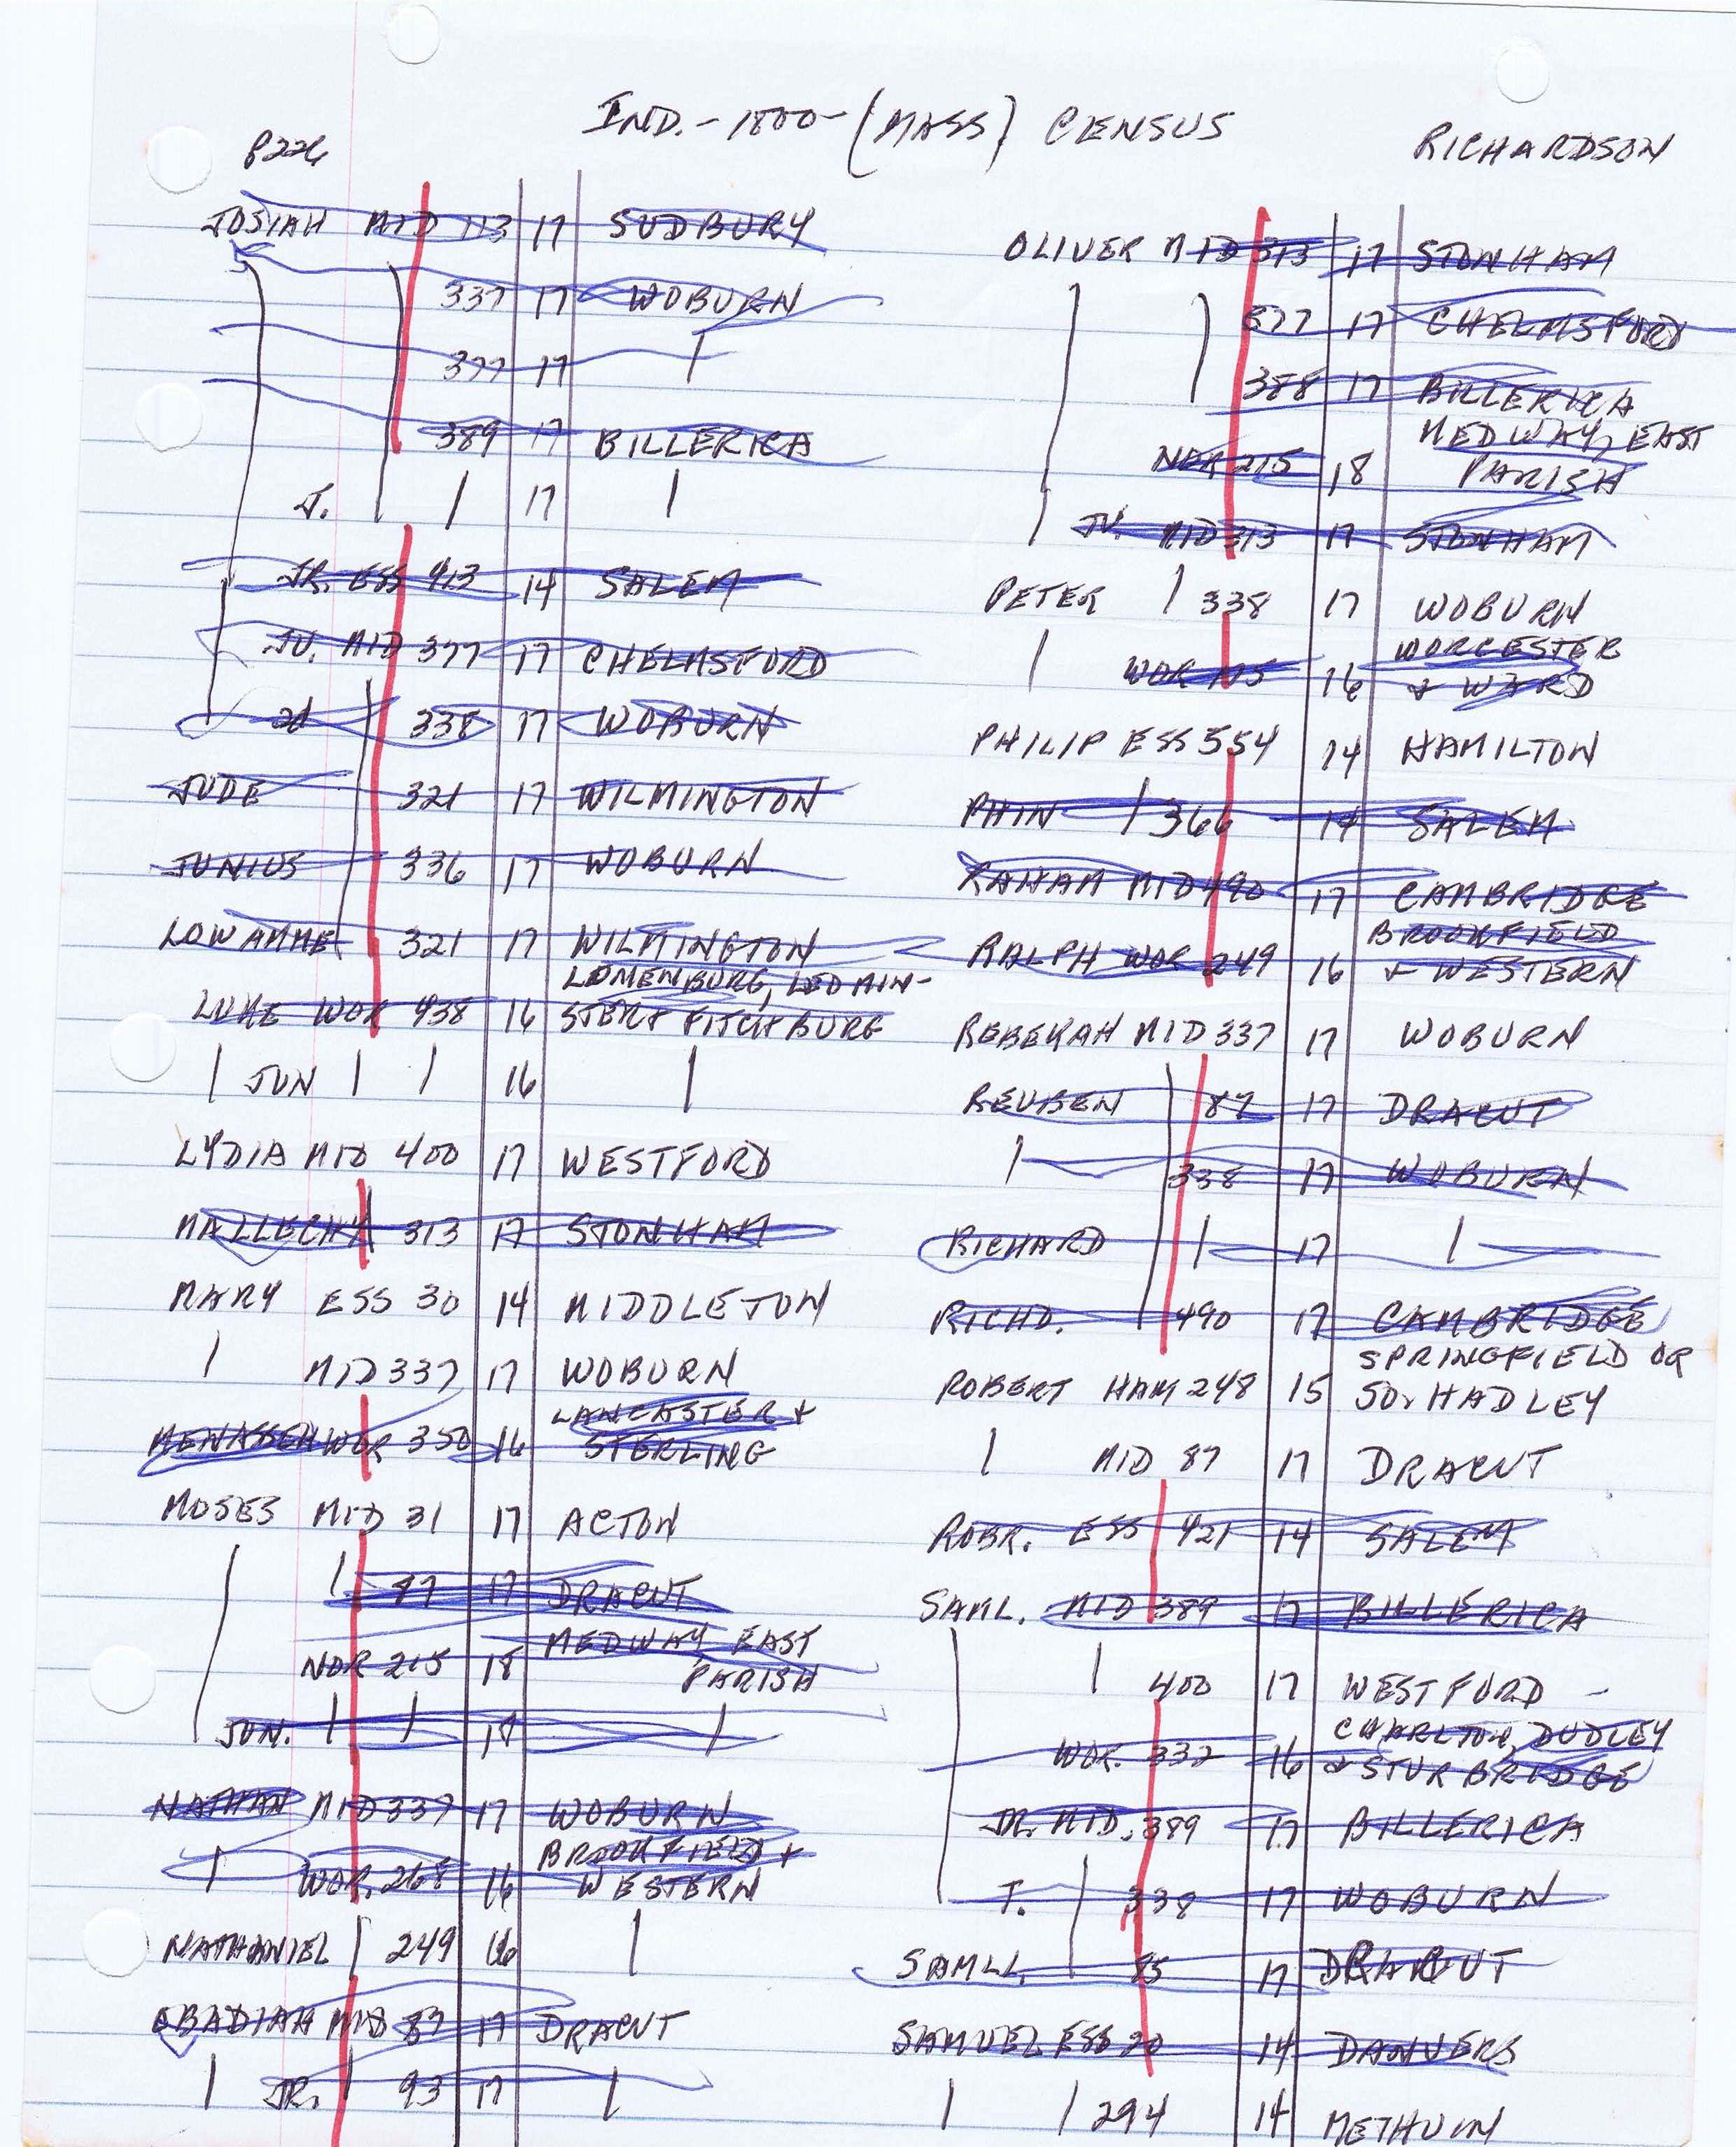 P226
IND. - 1800 - (MASS) CENSUS
RICHARDSON
JOSIAH MID 113 17 SUDBURY
337 17 WOBURN
377 17
389 17 BILLERICA
J. 17
JR. ESS 413 14 SALEM
JU. MID 377 17 CHELMSFORD
2d 338 17 WOBURN
JUDE 321 17 WILMINGTON
JUNIUS 336 17 WOBURN
LOWAMME 321 17 WILMINGTON
LUMENBURG, LEOMIN-
LUKE WOR 438 16 STER & FITCHBURG
JUN 16
LYDIA MID 400 17 WESTFORD
MALLECHY 313 17 STONHAM
MARY ESS 30 14 MIDDLETOW
MID 337 17 WOBURN
LANCASTER &
MENASSEH WOR 350 16 STERLING
MOSES MID 31 17 ACTON
87 17 DRACUT
MEDWAY, EAST
NOR 215 18 PARISH
JUN. 18
NATHAN MID 337 17 WOBURN
BROOKFIELD &
WOR. 268 16 WESTERN
NATHANIEL 249 16
OBADIAH MID 87 17 DRACUT
JR. 93 17
OLIVER MID 313 17 STONHAM
377 17 CHELMSFORD
388 17 BILLERICA
MEDWAY, EAST
NOR 215 18 PARISH
JU. MID 313 17 STONHAM
PETER 338 17 WOBURN
WORCESTER
WOR 175 16 & WARD
PHILIP ESS 554 14 HAMILTON
PHIN 366 14 SALEM
RAHAM MID 490 17 CAMBRIDGE
BROOKFIELD
RALPH WOR 249 16 & WESTERN
REBEKAH MID 337 17 WOBURN
REUBEN 87 17 DRACUT
338 17 WOBURN
RICHARD 17
RICHD. 490 17 CAMBRIDGE
SPRINGFIELD OR
ROBERT HAM 248 15 SO. HADLEY
MID 87 17 DRACUT
ROBR. ESS 421 14 SALEM
SAML. MID 389 17 BILLERICA
400 17 WESTFORD -
CHARLTON, DUDLEY
WOR. 332 16 & STURBRIDGE
JR. MID. 389 17 BILLERICA
T. 338 17 WOBURN
SAMLL. 85 17 DRACUT
SAMUEL ESS 20 14 DANVERS
294 14 METHUIN